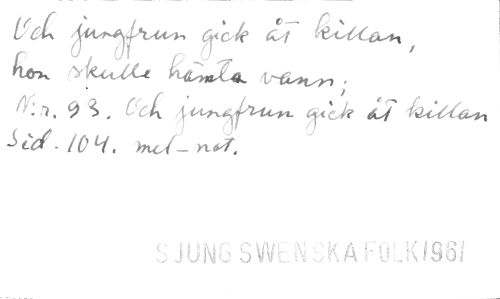 Och jungfrun gick åt killan,
hon skulle hämta vann;
N:r. 93. Och jungfrun gick åt killan
Sid. 104. mel-not.
SJUNG SWENSKA FOLK 1961